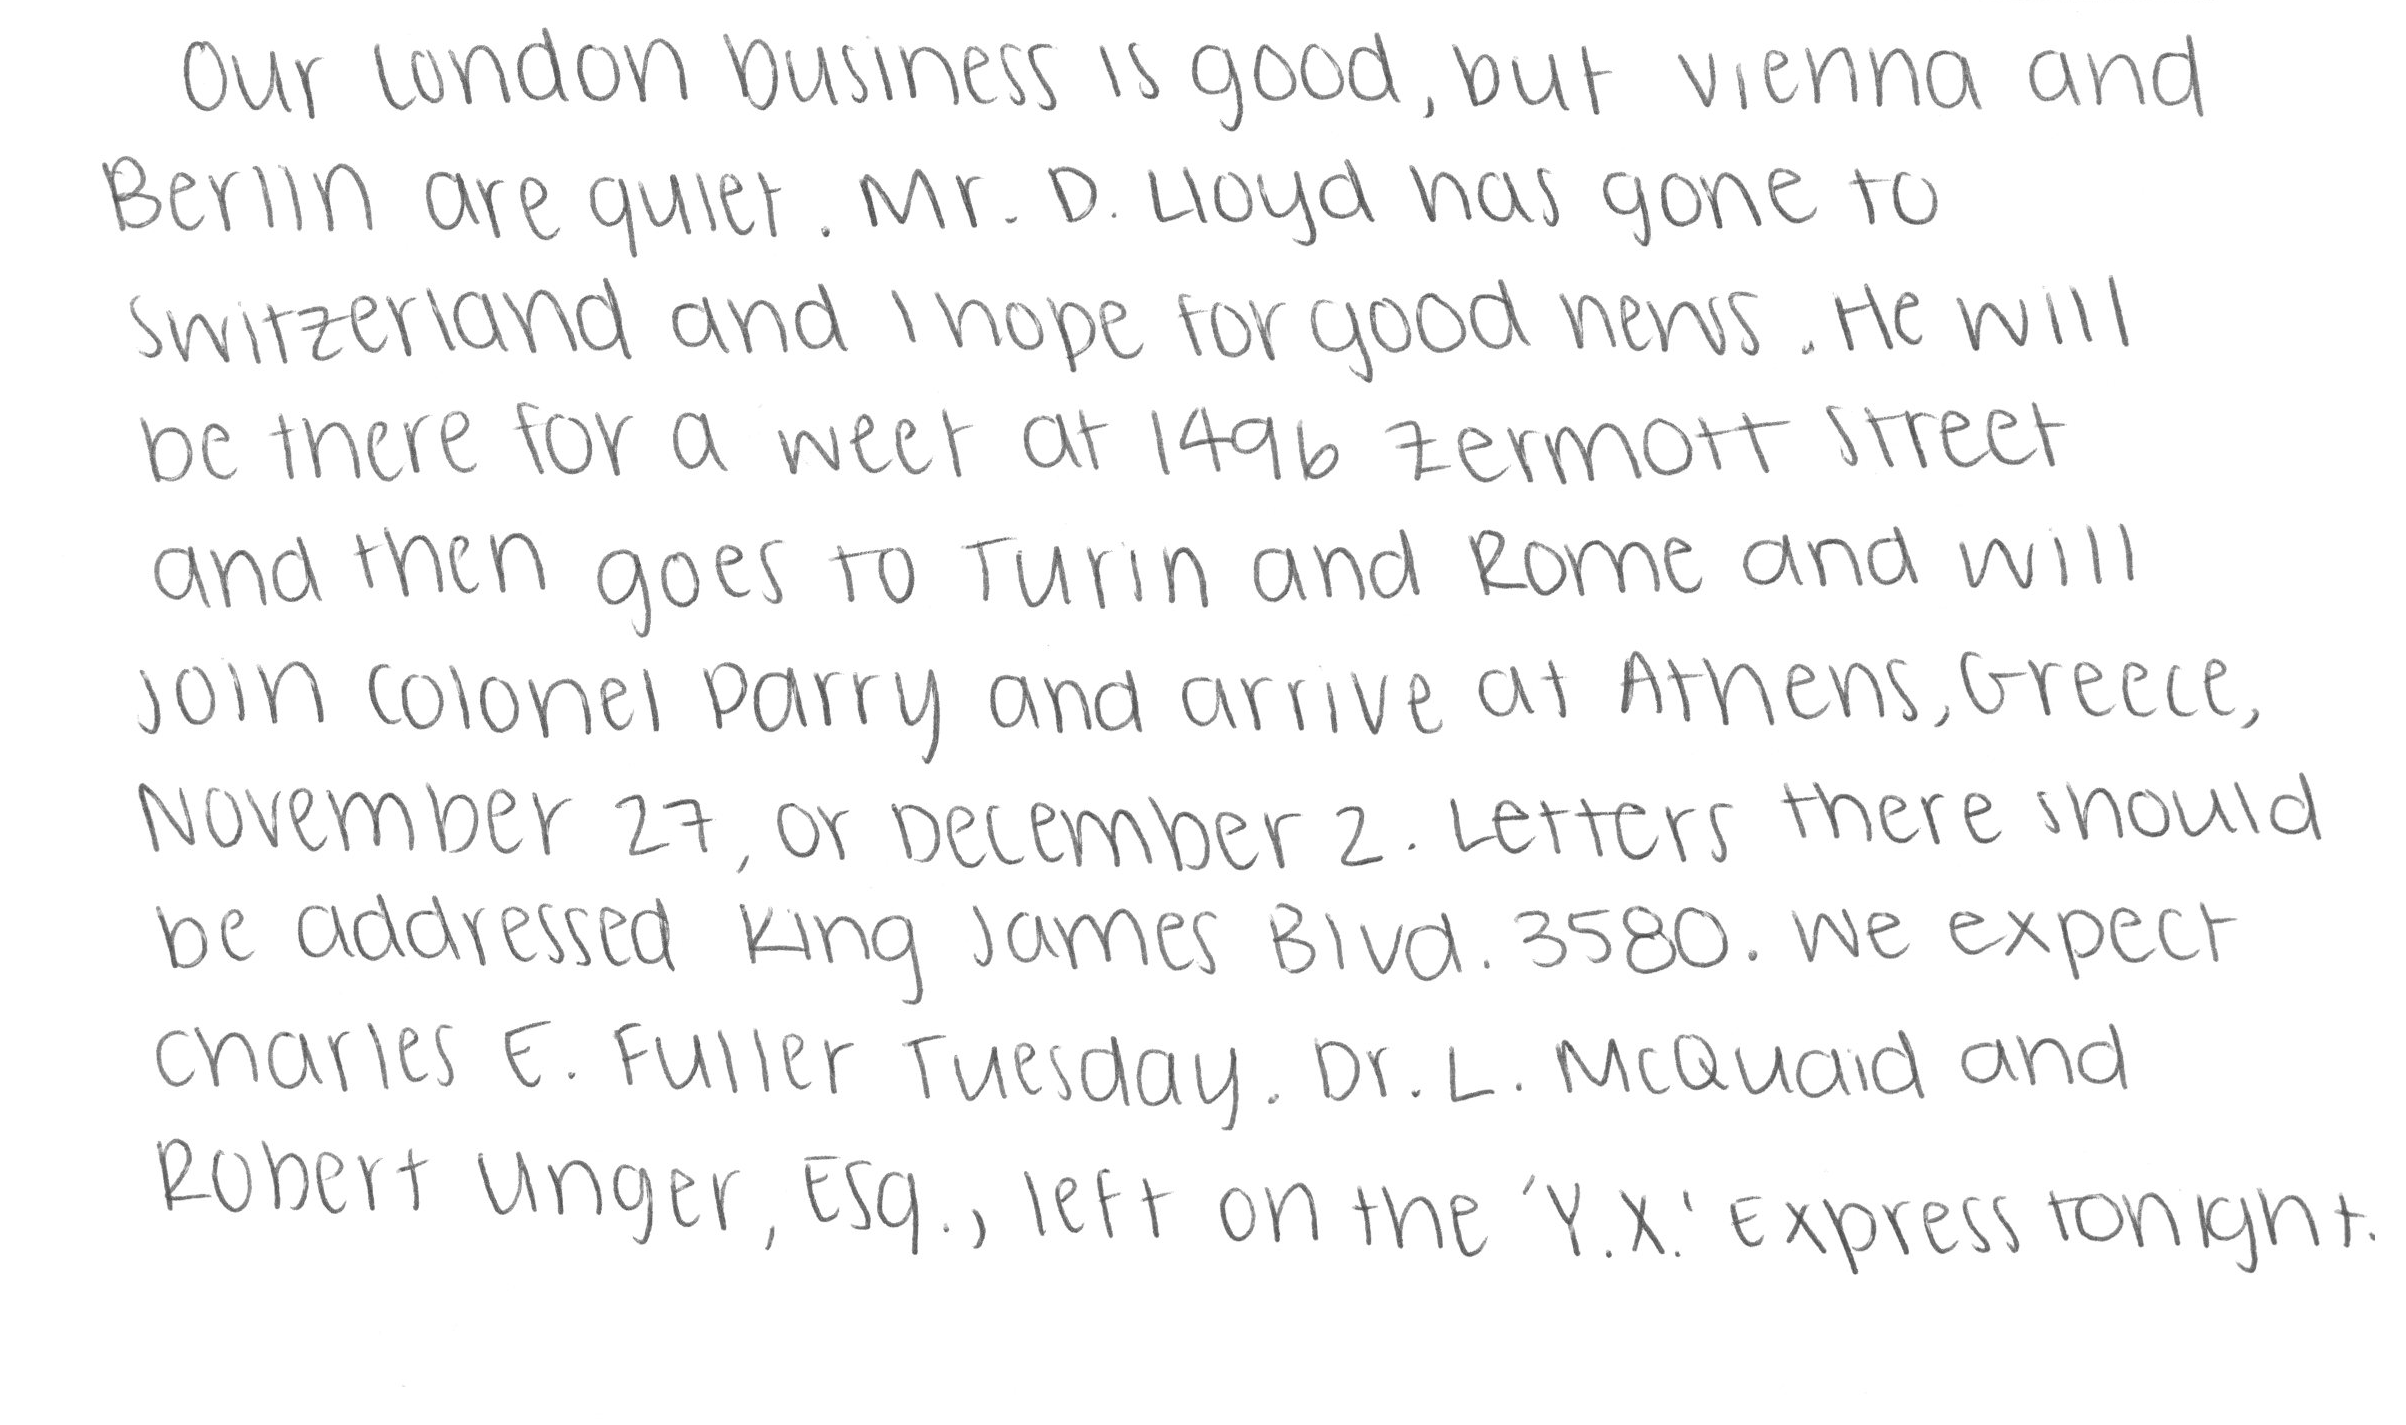 Our London business is good, but Vienna and
Berlin are quiet. Mr. D. Lloyd has gone to
Switzerland and I hope for good news. He will
be there for a week at 1496 Zermott Street
and then goes to Turin and Rome and will
join Colonel Parry and arrive at Athens, Greece,
November 27, or December 2. Letters there should
be addressed King James Blvd. 3580. We expect
Charles E. Fuller Tuesday. Dr. L. McQuaid and
Robert Unger, Esq., left on the 'Y.X.' Express tonight.